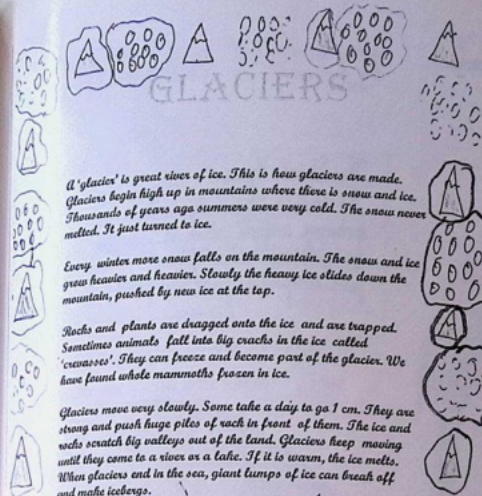 GLACIERS
A 'glacier' is great river of ice. This is how glaciers are made.
Glaciers begin high up in mountains where there is snow and ice.
Thousands of years ago summers were very cold. The snow never
melted. It just turned to ice.
Every winter more snow falls on the mountain. The snow and ice
grow heavier and heavier. Slowly the heavy ice slides down the
mountain, pushed by new ice at the top.
Rocks and plants are dragged onto the ice and are trapped.
Sometimes animals fall into big cracks in the ice called
'crevasses'. They can freeze and become part of the glacier. We
have found whole mammoths frozen in ice.
Glaciers move very slowly. Some take a day to go 1 cm. They are
strong and push huge piles of rock in front of them. The ice and
rocks scratch big valleys out of the land. Glaciers keep moving
until they come to a river or a lake. If it is warm, the ice melts.
When glaciers end in the sea, giant lumps of ice can break off
and make icebergs.